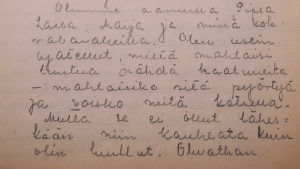 Olimme aamulla
Maija ja minä kole-
rabarakeilla. Olen usein
ajatellut, miltä mahtaisi
tuntua nähdä kaatuneita
– mahtaisiko siitä pyörtyä
ja voisko niitä katsella.
Mutta se ei ollut lähes-
kään niin kauheata kuin
olin kuullut. Olivathan